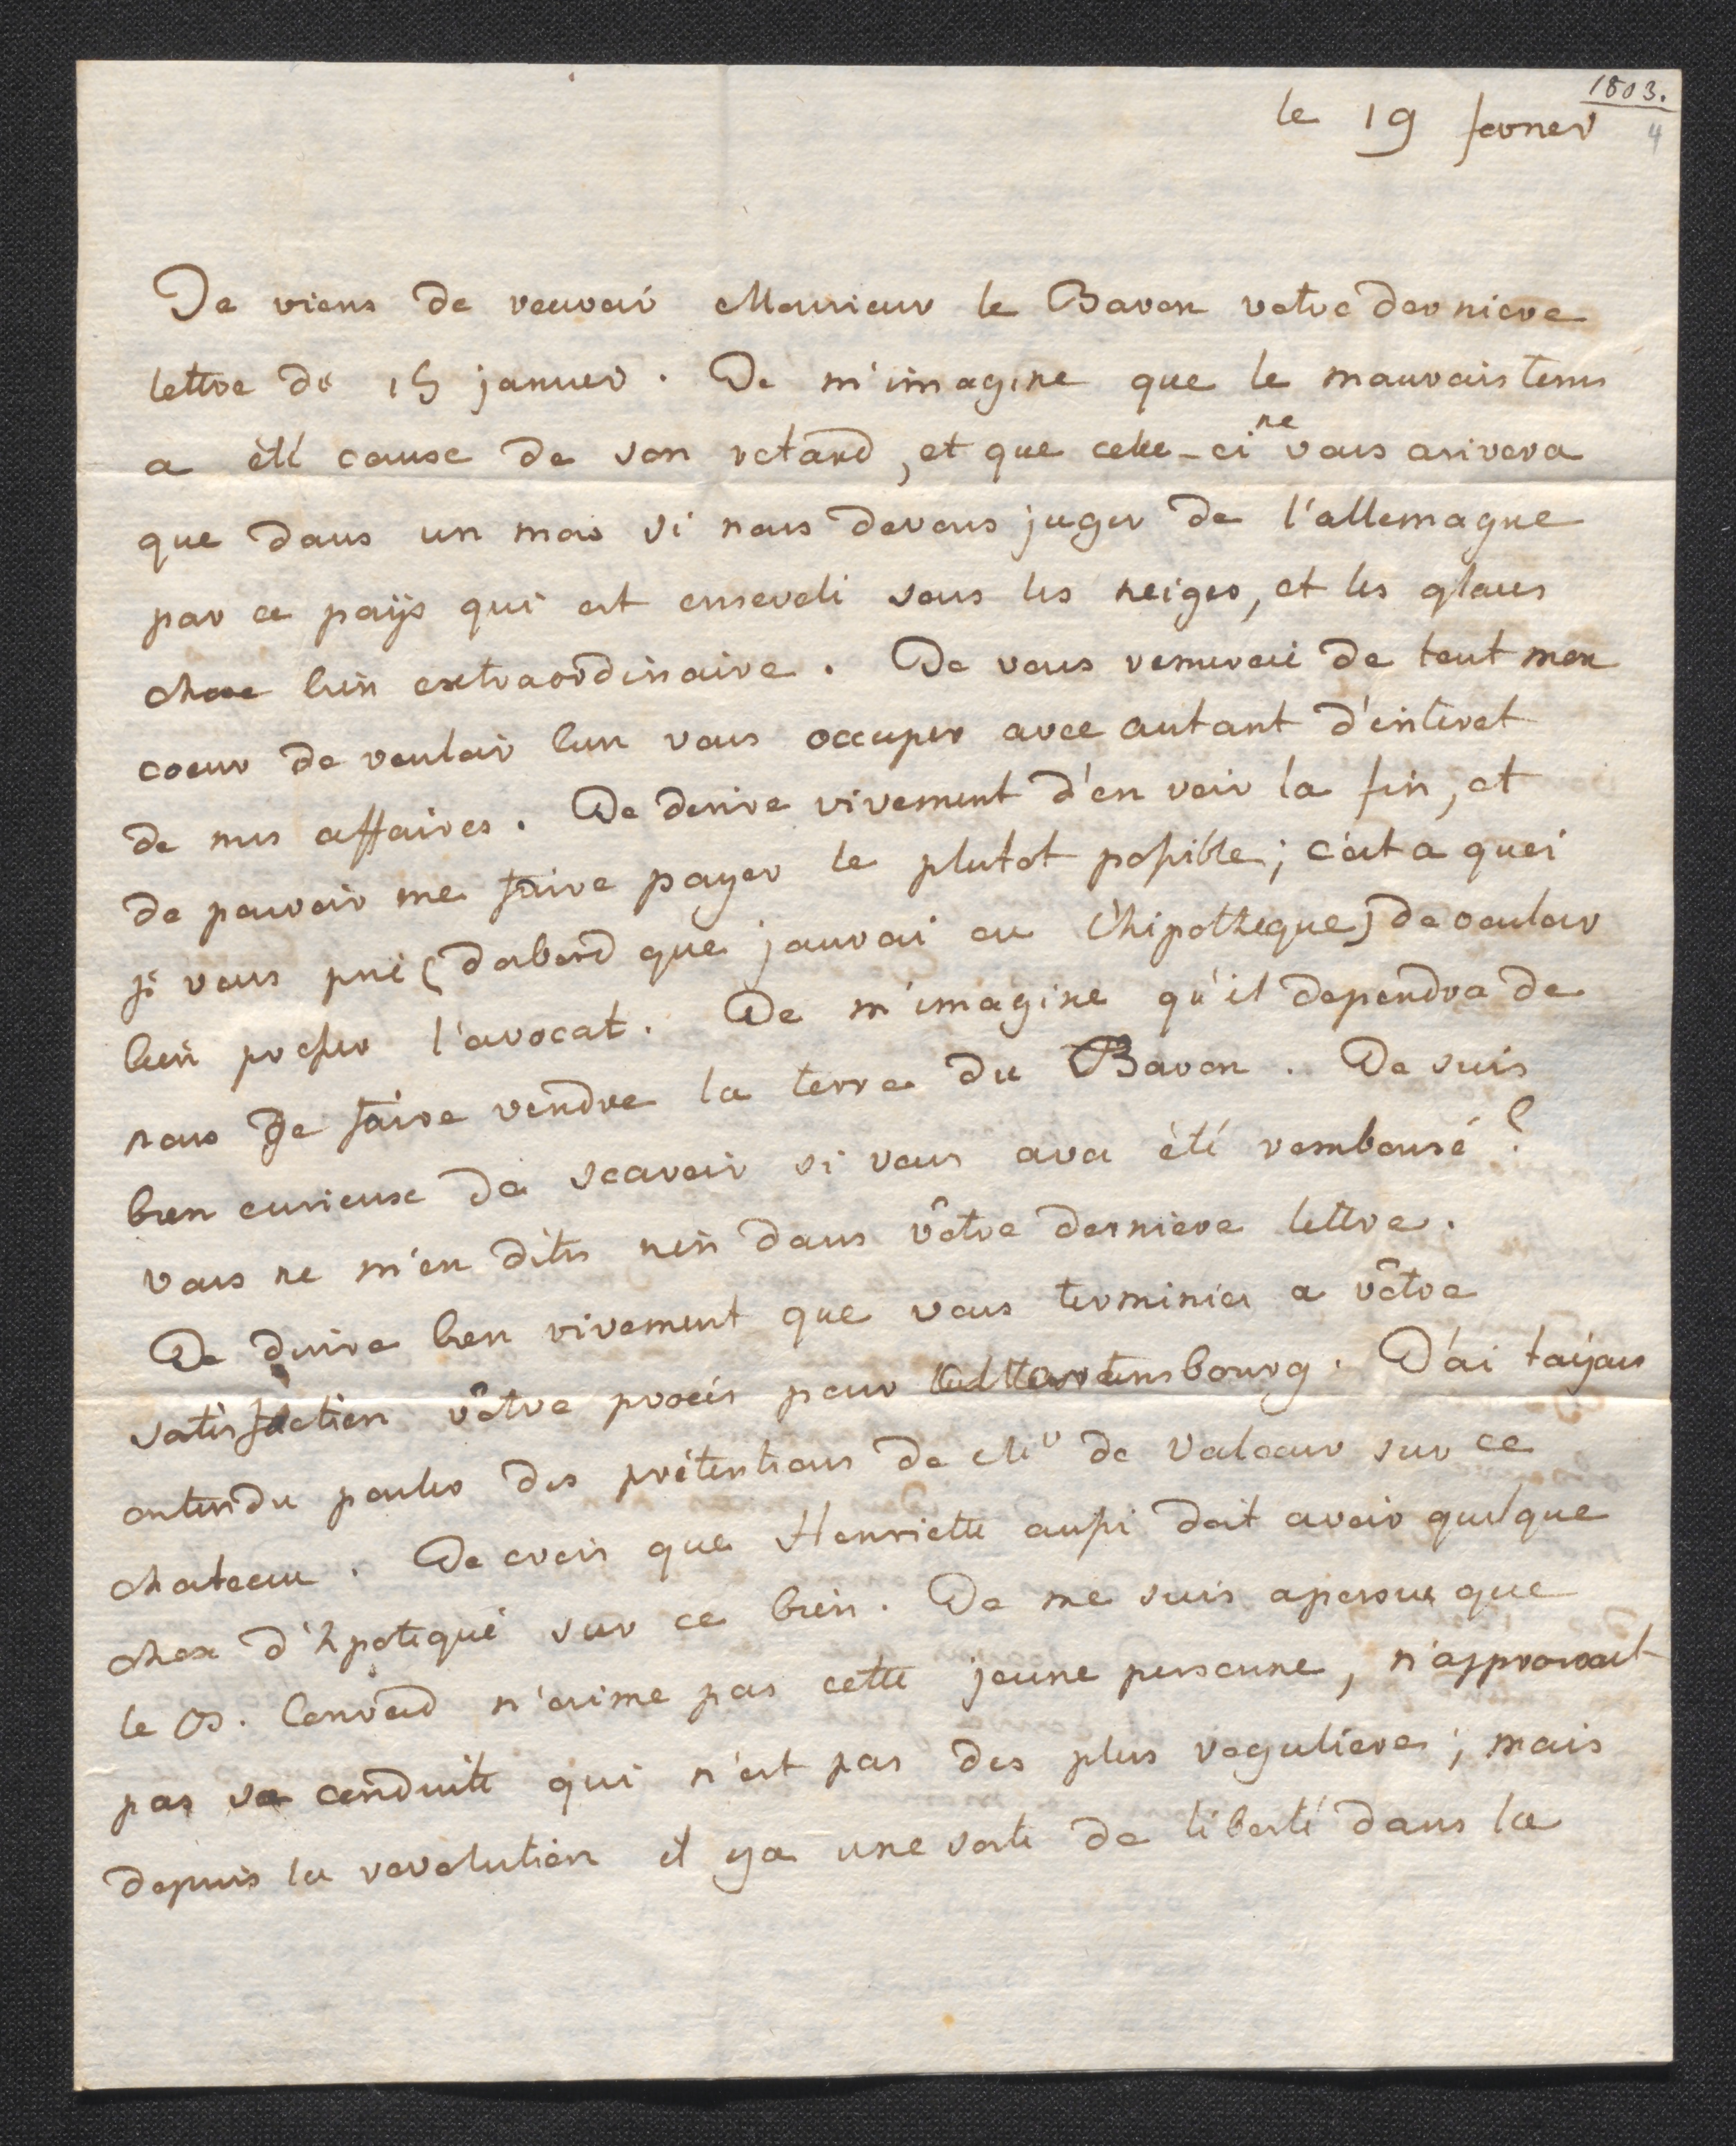 1803.
4
le 19 fevrier
Je viens de recevoir Monsieur le Baron votre derniere
lettre de 15 janvier. Je m'imagine que le mauvais tems
a èté cause de son retard, et que celle-ci ne vous arivera
que dans un mois si nous devons juger de l'allemagne
par ce païs qui est enseveli sous les neiges, et les glaces
chose bien extraordinaire. Je vous remercie de tout mon
coeur de vouloir bien vous occuper avec autant d'interet
de mes affaires. Je desire vivement d'en voir la fin, et
de pouvoir me faire payer le plutot possible; c'est a quoi
je vous prie (dabord que jaurai eu l'hipotheque) de vouloir
bien presser l'avocat. Je m'imagine qu'il dependra de
nous de faire vendre la terre du Baron. Je suis
bien curieuse de scavoir si vous avez èté remboursé?
vous ne m'en dites rien dans vôtre derniere lettre.
Je desire bien vivement que vous terminiez a vôtre
satisfaction vôtre procés pour Martensbourg. J'ai toujours
entendu parler des prétentions de Mr de Valcour sur ce
chateau. Je crois que Henriette aussi doit avoir quelque
chose d'hpotequé sur ce bien. Je me suis apersue que
le B. Conrad n'aime pas cette jeune personne, n'approuvait
pas sa conduite qui n'est pas des plus reguliere; mais
depuis la revolution il ya une sorte de liberté dans la